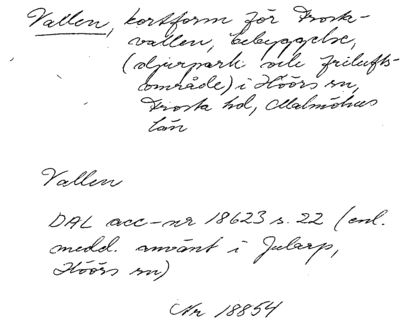 Vallen, kortform för Frosta-
vallen, bebyggelse,
(djurpark och frilufts-
område) i Höörs sn,
Frosta hd, Malmöhus
län
Vallen
DAL acc-nr 18623 s. 22 (enl.
medd. använt i Jularp,
Höörs sn)
Nr 18854